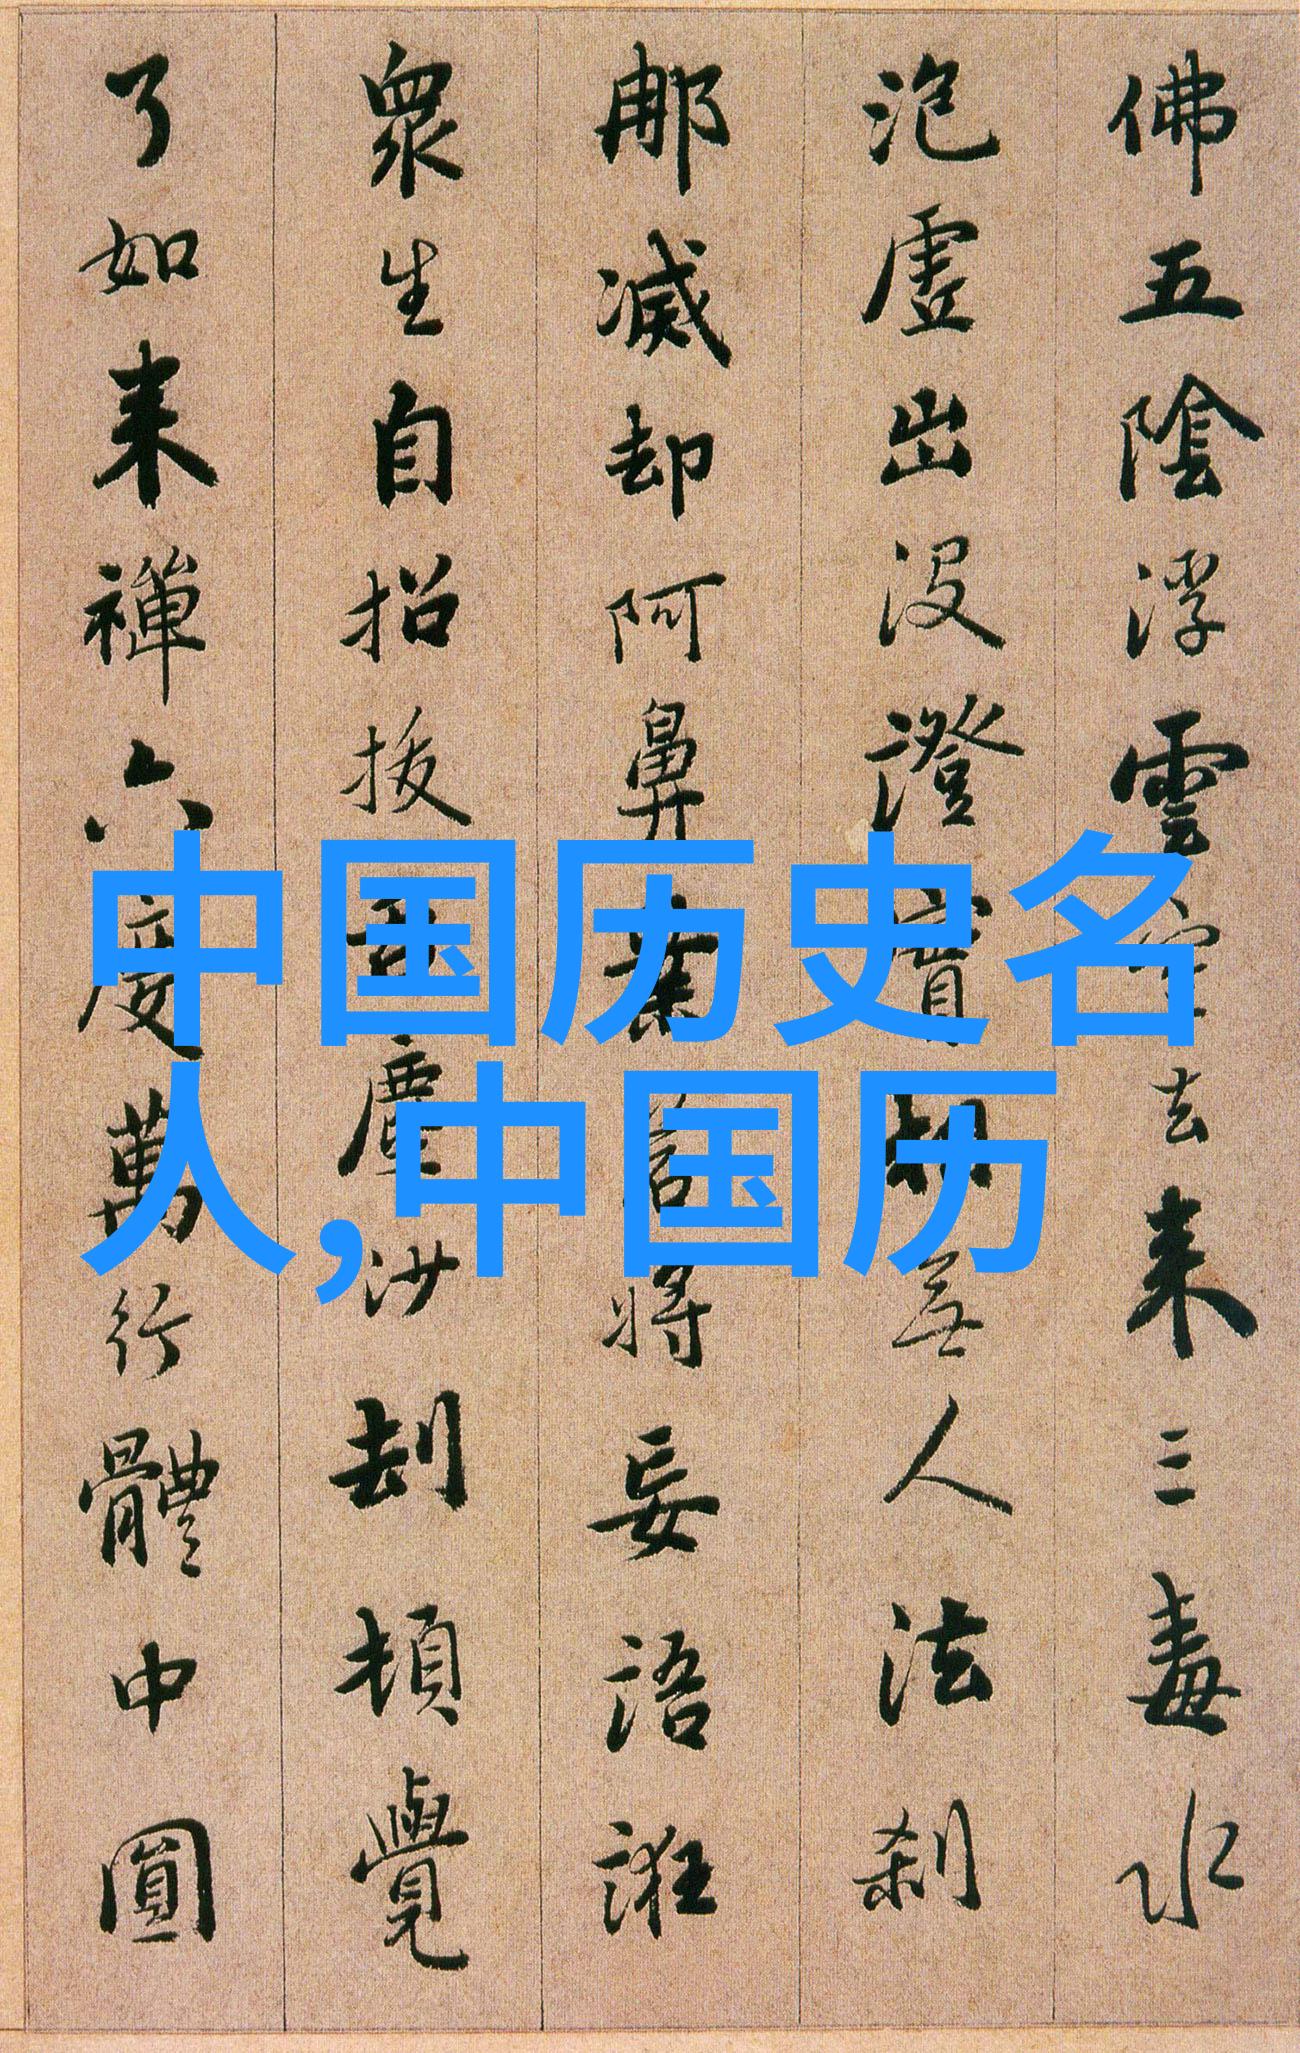 佛五陰浮雲空去来三毒水
泡虛出没證實相無人法刹
那滅却阿鼻業若將妄語誑
衆生自招拔舌塵沙劫頓覺
了如来禪六度萬行體中圓
中国历史名
人,中国历